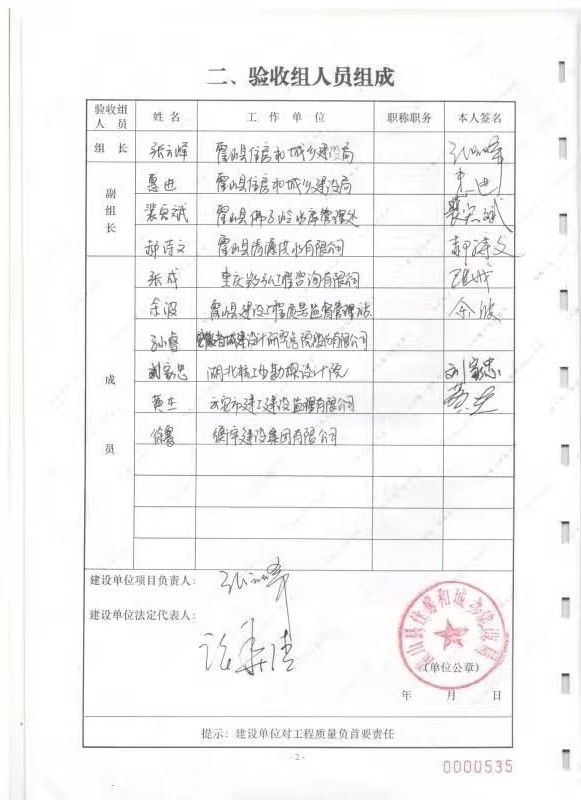 二、验收组人员组成
验收组人员 姓名 工作单位 职称职务 本人签名
组长 张云峰 霍山县住房和城乡建设局
副组长 惠也 霍山县住房和城乡建设局
裴宾斌 霍山县佛子岭水库管理处 裴宾斌
郝涛文 霍山县 供水有限公司 郝涛文
成员 张成 重庆 工程咨询有限公司
余波 霍山县建设工程质量监督管理站 余波
孙睿 设计研究总院股份有限公司
刘家忠 湖北 勘探设计院 刘家忠
黄杰 建工建设监理有限公司 黄杰
徐 衡宇建设集团有限公司
建设单位项目负责人:
建设单位法定代表人:
霍山县住房和城乡建设局
(单位公章)
年 月 日
提示:建设单位对工程质量负首要责任
- 2 -
0000535